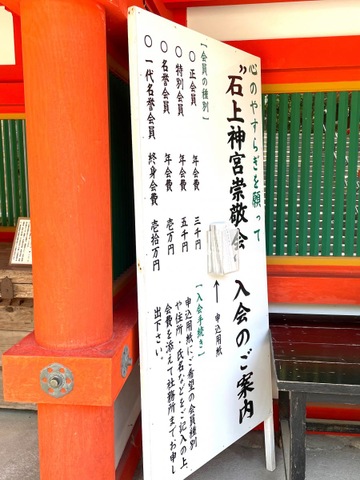 心のやすらぎを願って
〝石上神宮崇敬会〟入会のご案内
↑申込用紙
【会員の種別】
○正会員 年会費 三千円
○特別会員 年会費 五千円
○名誉会員 年会費 壱万円
○一代名誉会員 終身会費 壱拾万円
【入会手続き】
申込用紙にご希望の会員種別
や住所・氏名などをご記入の上、
会費を添えて社務所までお申し
出下さい。